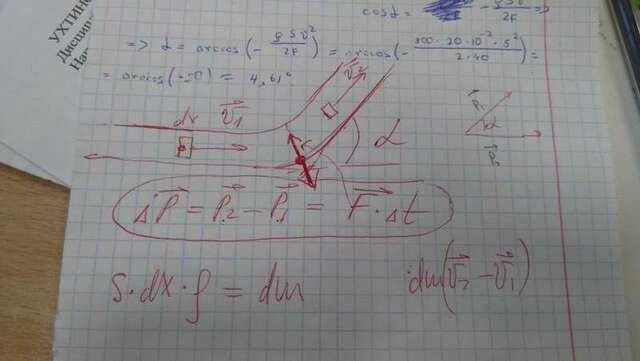 УХТИНС
Дисцип
На
cos α = - ρSV²/2F =>
=> α = arccos(- ρSV²/2F) = arccos(- 200·20·10⁻²·5²/2·40) =
= arccos(-50) = 4,61°
dx V⃗₁ V⃗₂
F α
P⃗₂ α P⃗₁
ΔP⃗ = P⃗₂ - P⃗₁ = F⃗·Δt
S·dx·ρ = dm dm(V⃗₂ - V⃗₁)